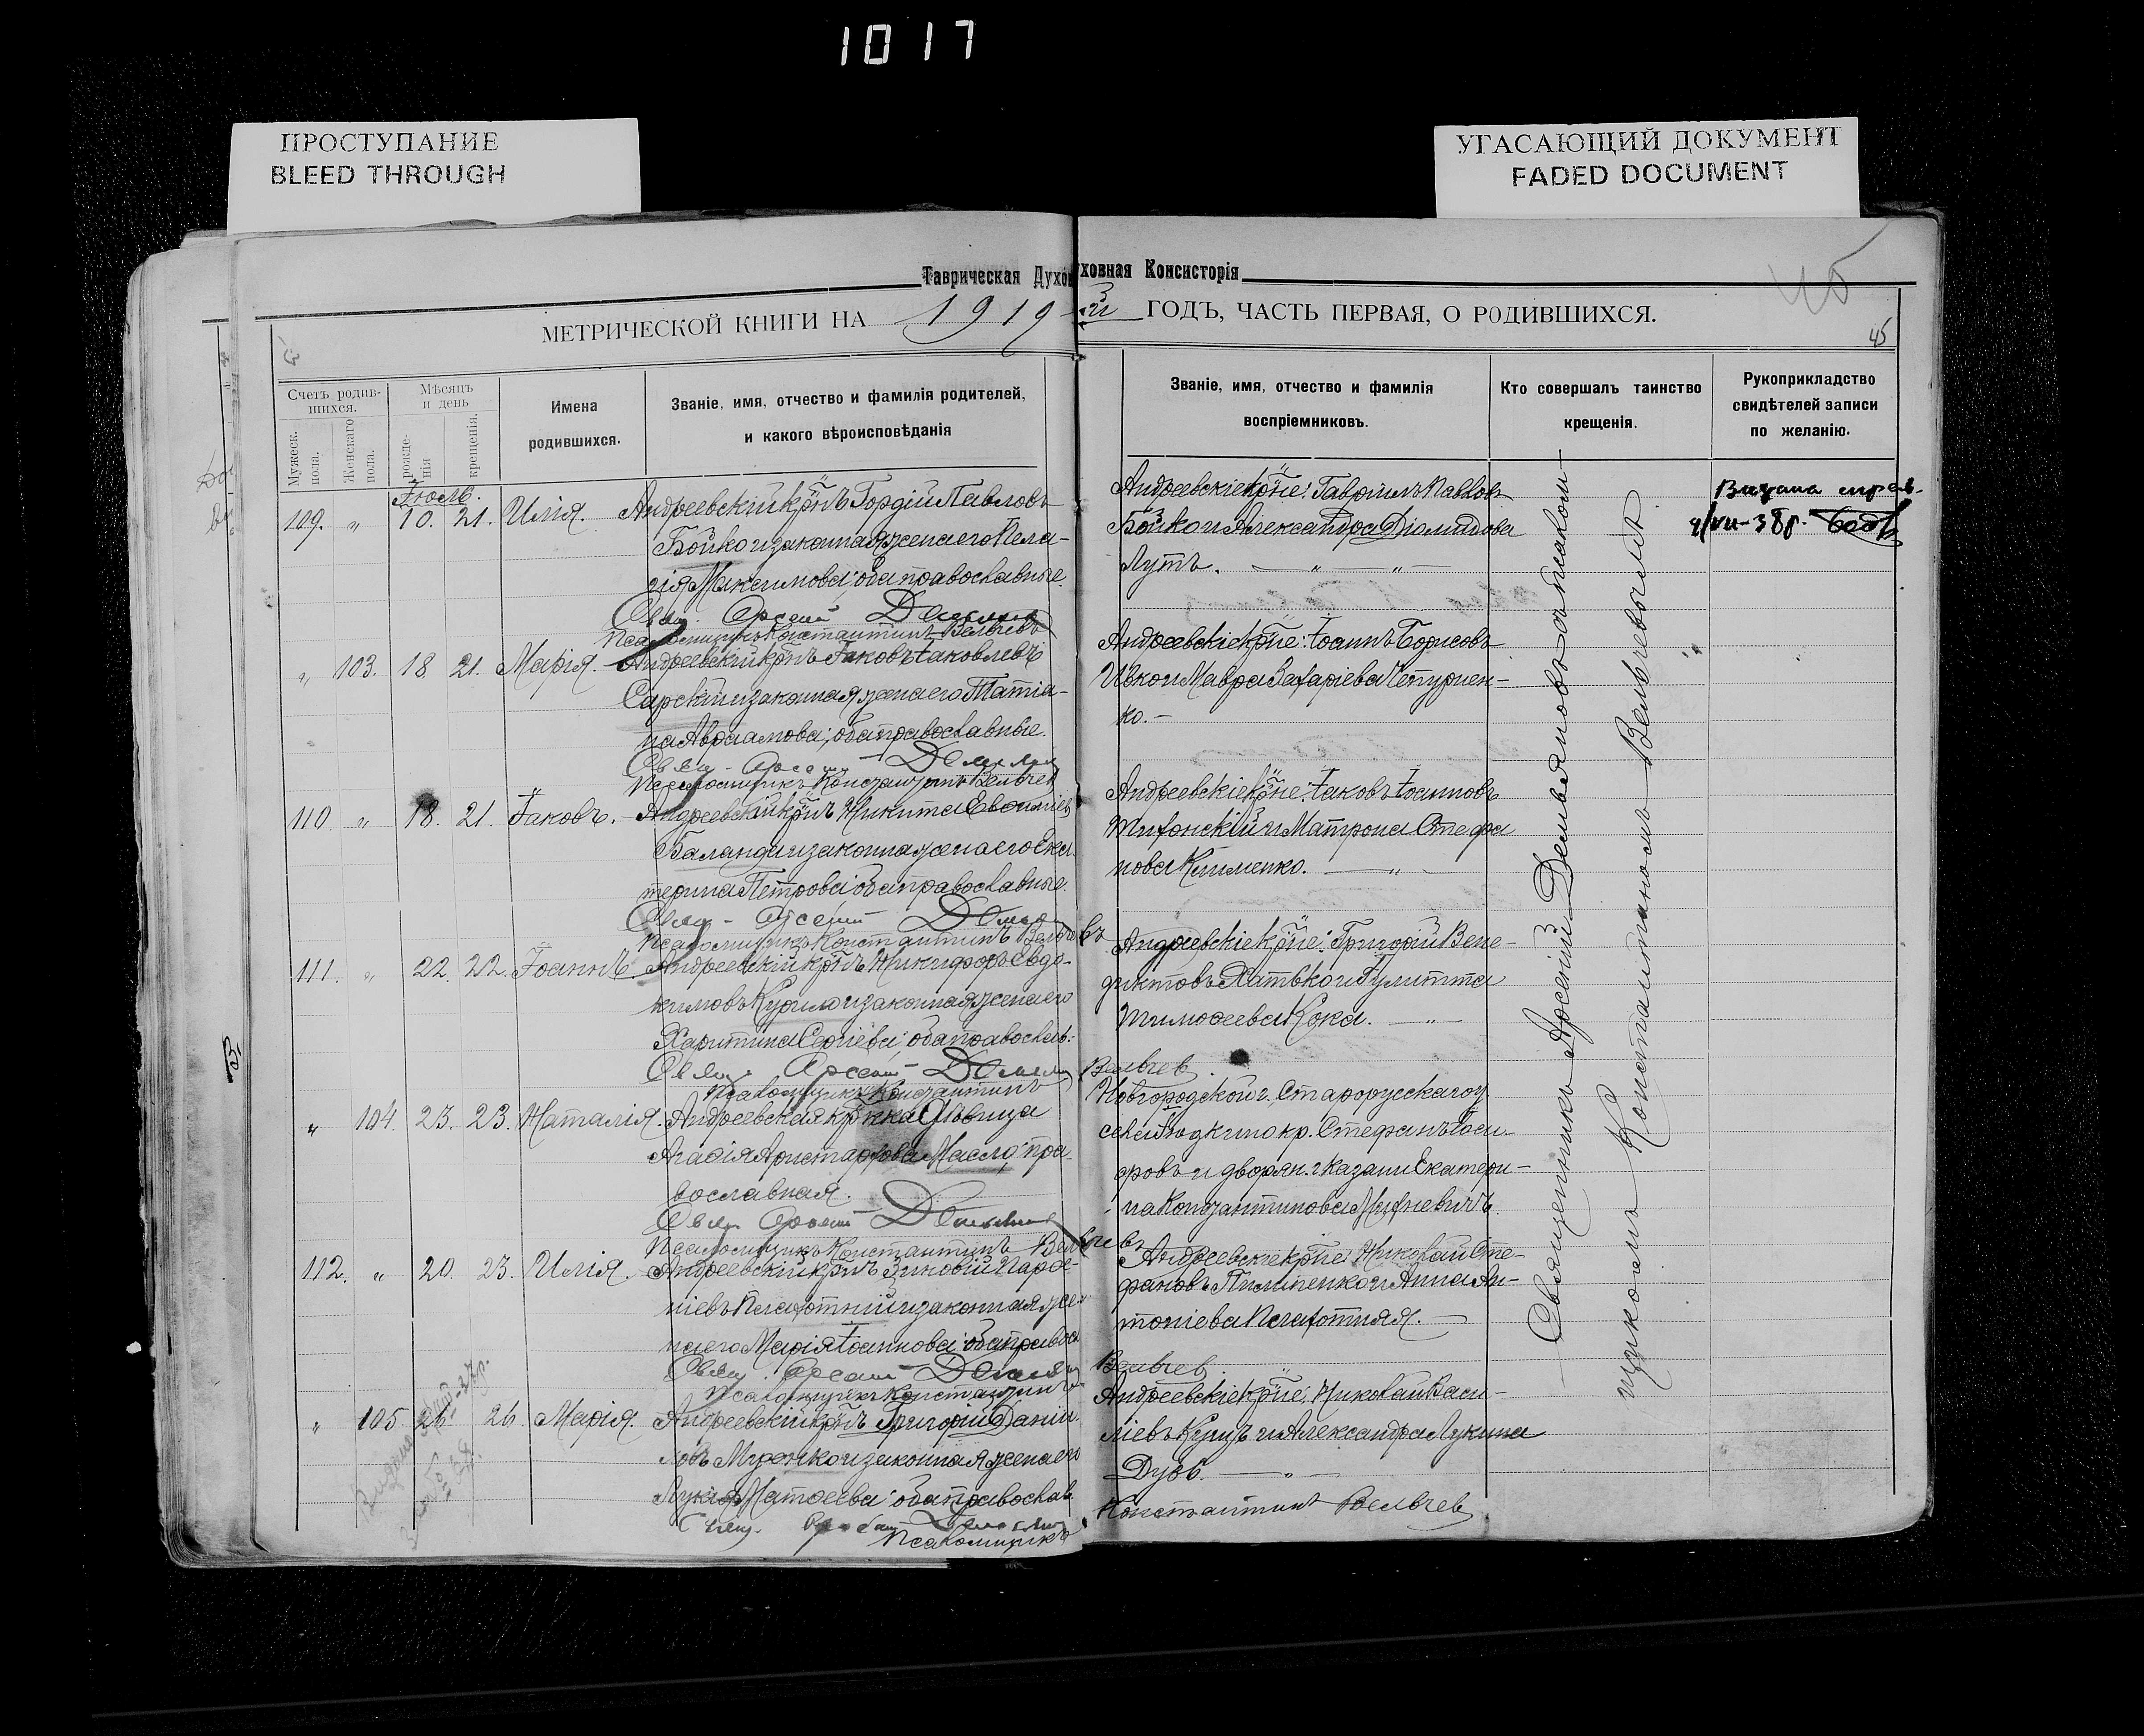 1017
ПРОСТУПАНИЕ
BLEED THROUGH
УГАСАЮЩИЙ ДОКУМЕНТ
FADED DOCUMENT
Таврическая Духовная Консисторія
МЕТРИЧЕСКОЙ КНИГИ НА 1919-й ГОДЪ, ЧАСТЬ ПЕРВАЯ, О РОДИВШИХСЯ.
45
45
Счетъ родив-
шихся.
Мужеск.
пола.
Женскаго
пола.
Мѣсяцъ
и день
рожде-
нія
крещенія.
Имена
родившихся.
Званіе, имя, отчество и фамилія родителей,
и какого вѣроисповѣданія
Званіе, имя, отчество и фамилія
воспріемниковъ.
Кто совершалъ таинство
крещенія.
Рукоприкладство
свидѣтелей записи
по желанію.
Іюль.
109. " 10. 21. Илія. Андреевскій кр-нъ Гордій Павловъ
Бойко и законная жена его Пела-
гія Максимова; оба православные.
Свящ. Арсеній
Псаломщикъ Константинъ Вельчевъ
Андреевскіе кр-не: Гавріилъ Павловъ
Бойко и Александра Діомидова
Лутъ. — " — " —
" 103. 18. 21. Марія. Андреевскій кр-нъ Іаковъ Іаковлевъ
Сирскій и законная жена его Татіа-
на Авраамова; оба православные.
Свящ. Арсеній
Псаломщикъ Константинъ Вельчев
Андреевскіе кр-не: Іоаннъ Борисовъ
Ивко и Мавра Захаріева Чепурнен-
ко. —
110 " 18. 21. Іаковъ. Андреевскій кр-нъ Никита Евѳиміевъ
Баланди и законная жена его Ека-
терина Петрова; оба православные.
Свящ. Арсеній
Псаломщикъ Константинъ Вельчевъ
Андреевскіе кр-не: Іаковъ Іоанновъ
и Матрона Стефа
нова Клименко. — "
111. " 22. 22. Іоаннъ. Андреевскій кр-нъ Никифоръ Евдо-
кимовъ Курило и законная жена его
Харитина Сергіева; оба православ.:
Свящ. Арсеній
Псаломщикъ Константинъ Вельчев
Андреевскіе кр-не: Григорій Вене-
диктовъ Хатько и Іулитта
Тимоѳеева Кока. — "
" 104. 23. 23. Наталія. Андреевская кр-нка дѣвица
Агаѳія Аристархова Масло; пра-
вославная.
Свящ. Арсеній
Псаломщикъ Константинъ Вельчевъ
Новгородской г. Старорусскаго у.
кр. Стефанъ Іоси-
фовъ и дворян. г. Казани Екатери-
на Константинова
112. " 20. 23. Илія. Андреевскій кр-нъ Зиновій Парѳе-
ніевъ Плахотній и законная же-
на его Марія Іоаннова; оба правос
Свящ. Арсеній
Псаломщикъ Константинъ Вельчев
Андреевскіе кр-не: Николай Сте-
фановъ Пилипенко и Анна Ан-
тоніева Плахотняя. —
" 105. 26. 26. Марія. Андреевскій кр-нъ Григорій Даніи
ловъ и законная жена его
Лукія Матѳеева; оба православ.
Свящ.
Псаломщикъ Константинъ Вельчев
Андреевскіе кр-не: Николай Васи-
ліевъ Куцъ и Александра Лукина
Дубъ. — " —
Священникъ Арсеній Демьяновъ съ псалом-
щикомъ Константиномъ Вельчевымъ.